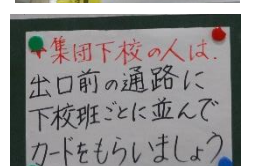 集団下校の人は.
出口前の通路に
下校班ごとに並んで
カードをもらいましょう